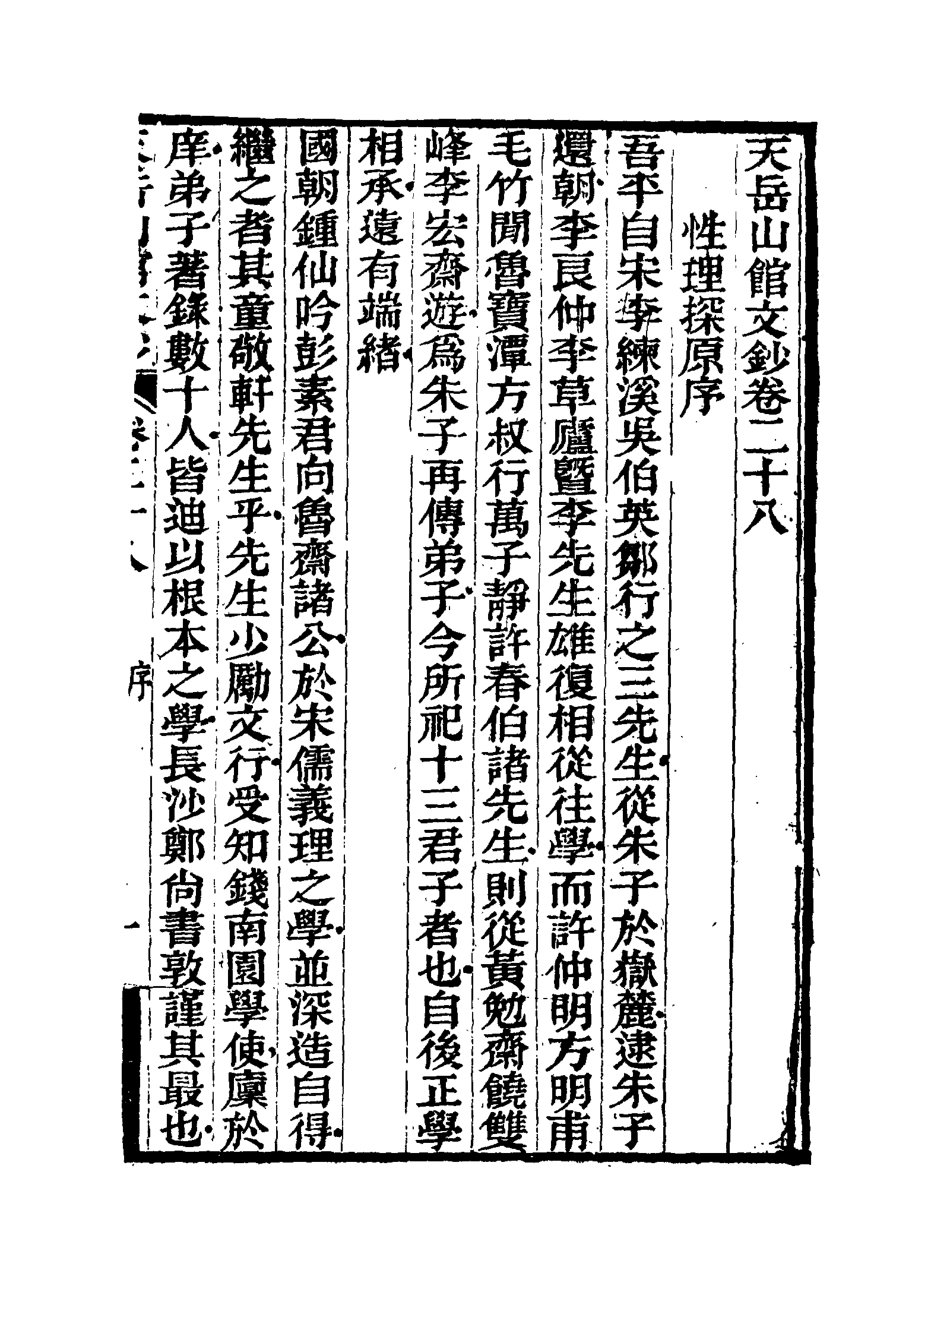 天岳山館文鈔卷二十八
性理探原序
吾平自宋李練溪吳伯英鄒行之三先生從朱子於嶽麓逮朱子
還朝李艮仲李草廬暨李先生雄復相從往學而許仲明方明甫
毛竹聞魯寶潭方叔行萬子靜許春伯諸先生則從黃勉齋饒雙
峰李宏齋遊爲朱子再傳弟子今所祀十三君子者也自後正學
相承遠有端緒
國朝鍾仙吟彭素君向魯齋諸公於宋儒義理之學並深造自得
繼之者其童敬軒先生乎先生少勵文行受知錢南園學使廩於
庠弟子著錄數十人皆迪以根本之學長沙鄭尙書敦謹其最也
天岳山館文鈔 卷二十八 序 一